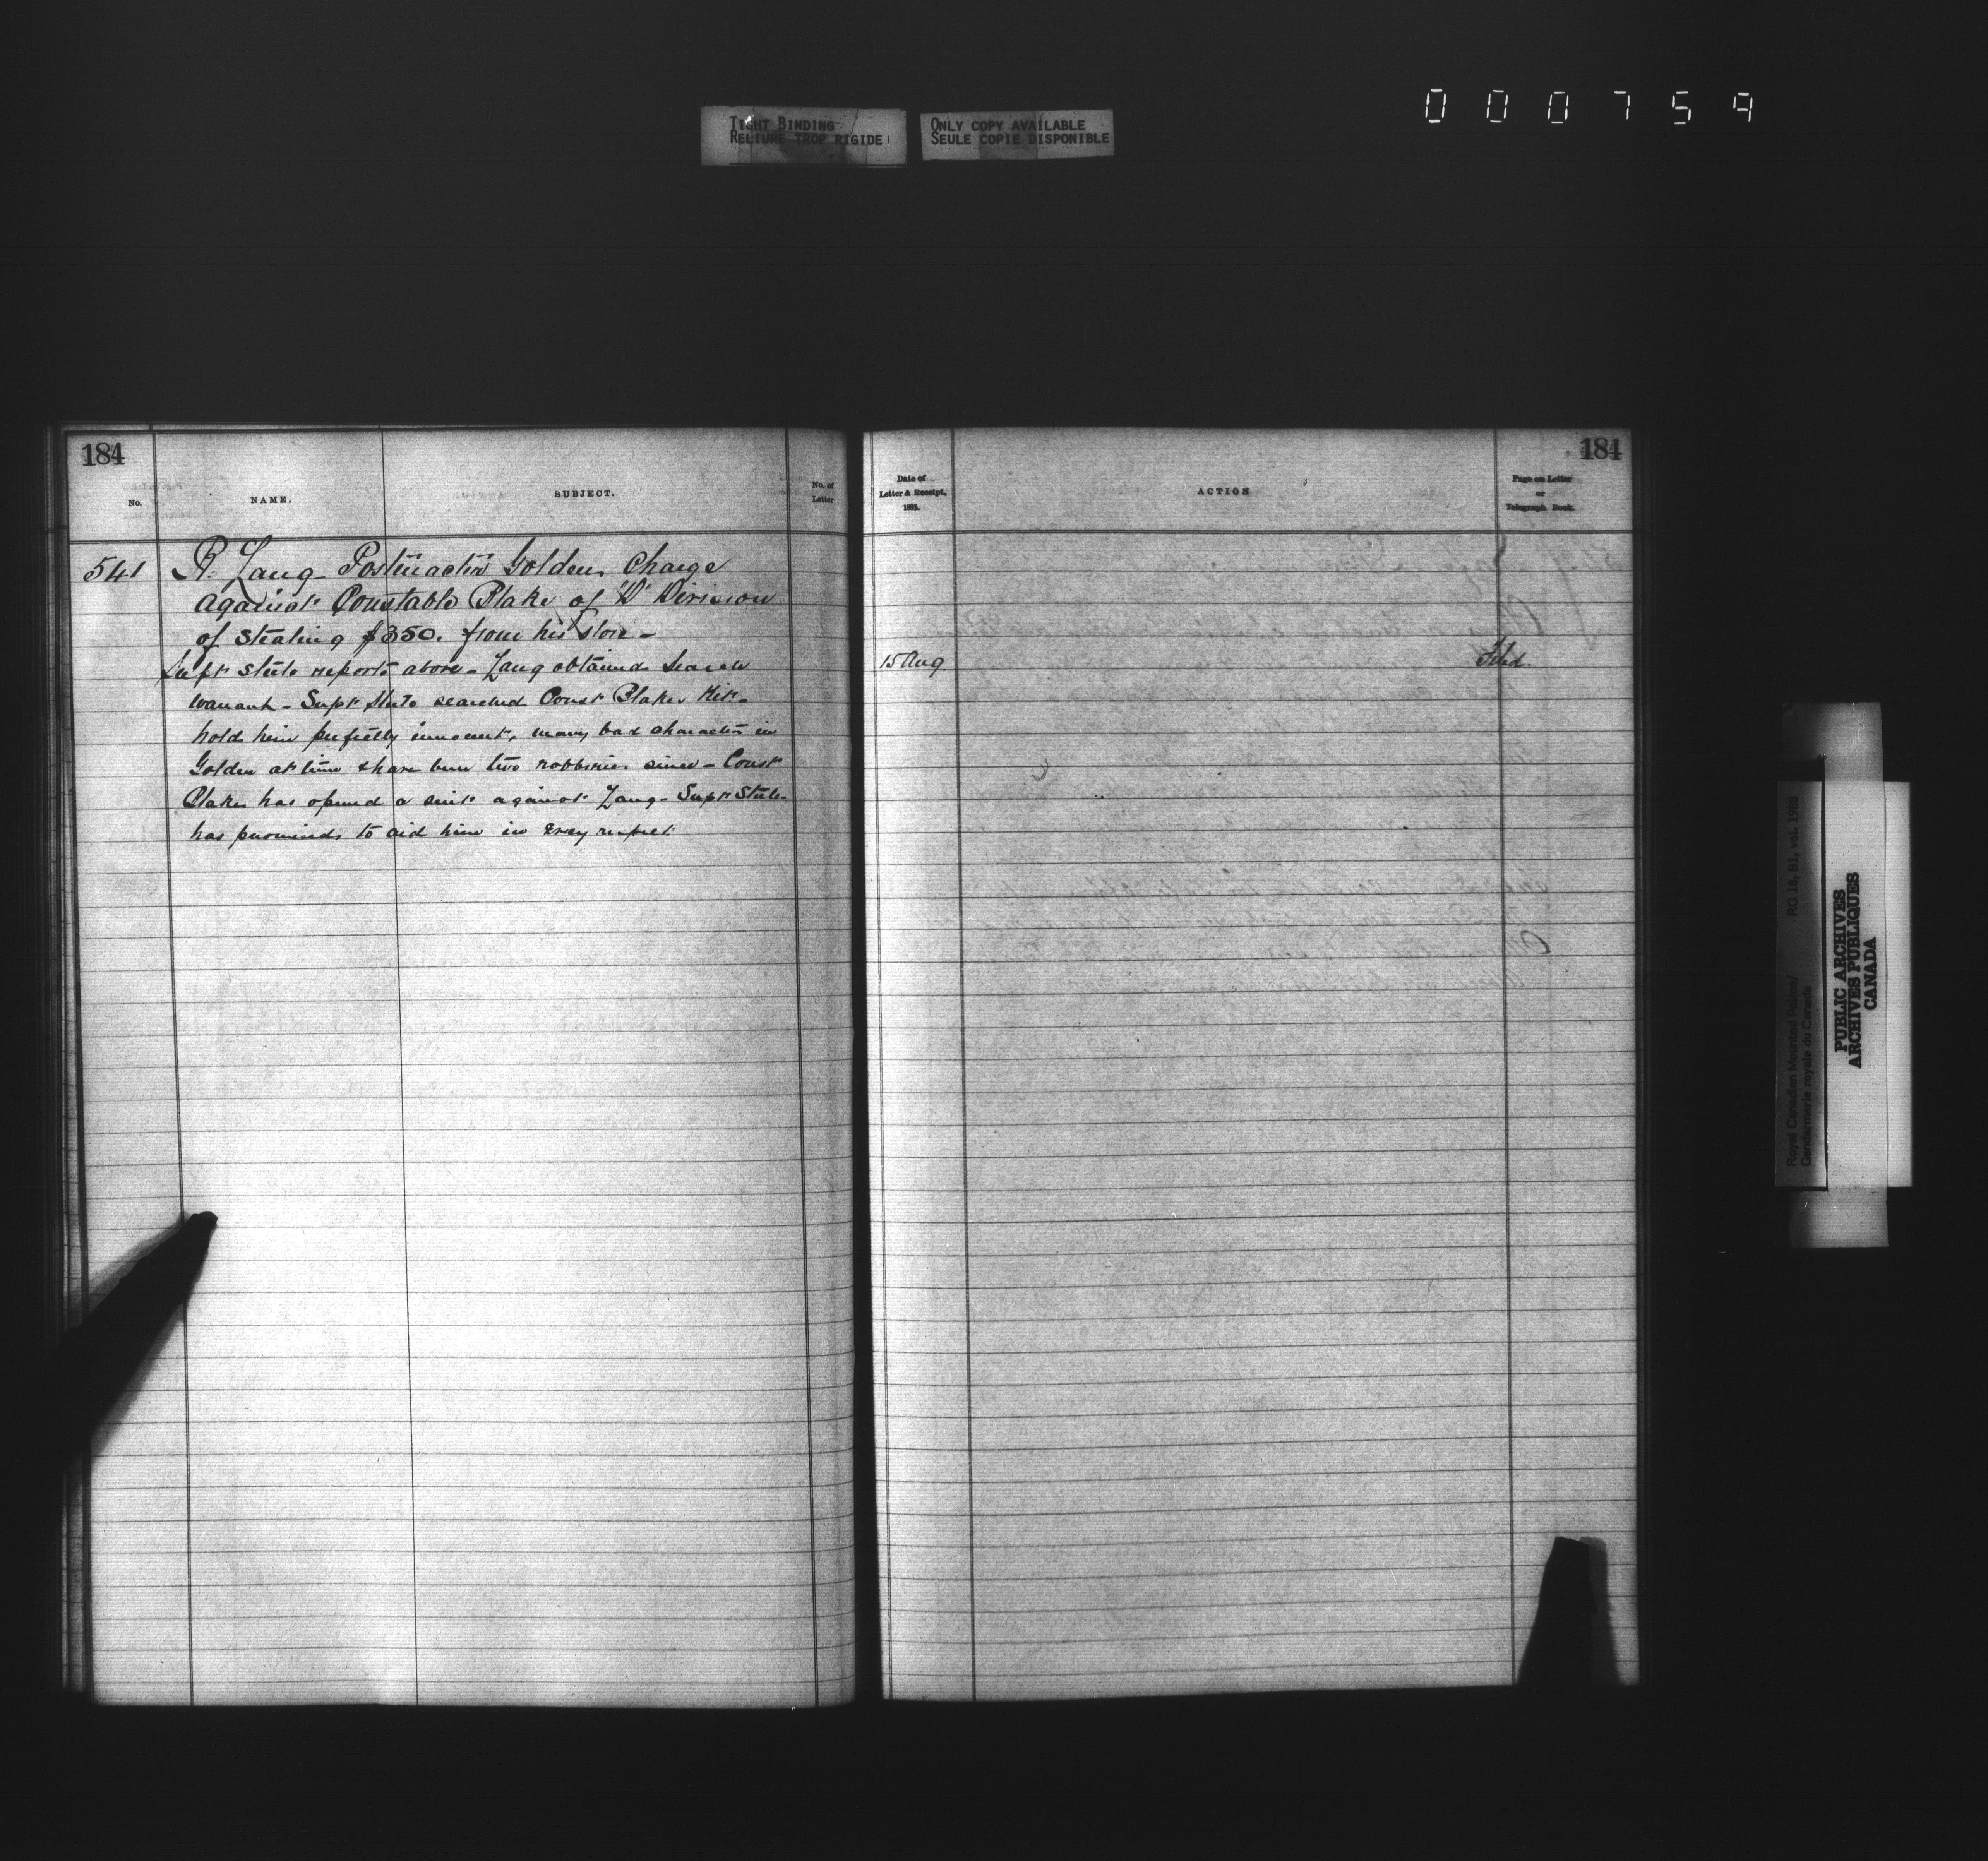 000759
TIGHT BINDING
RELIURE TROP RIGIDE
ONLY COPY AVAILABLE
SEULE COPIE DISPONIBLE
184
No.
NAME.
SUBJECT.
No. of
Letter
541
R. Lang Postmaster Golden Charge
against Constable Blake of "D" Division
of stealing $350. from his store -
Supt Steele reports above - Lang obtained search
warrant - Supt Steele searched Const Blakes Kit -
hold him perfectly innocent, many bad characters in
Golden at time & have been two robberies since - Const
Blake has opened a suit against Lang - Supt Steele
has promised to aid him in every respect
184
Date of
Letter & Receipt,
1885.
ACTION
Page on Letter
or
Telegraph Book.
15 Aug
Filed
Royal Canadian Mounted Police/
Gendarmerie royale du Canada
RG 18, B1, vol. 1986
PUBLIC ARCHIVES
ARCHIVES PUBLIQUES
CANADA